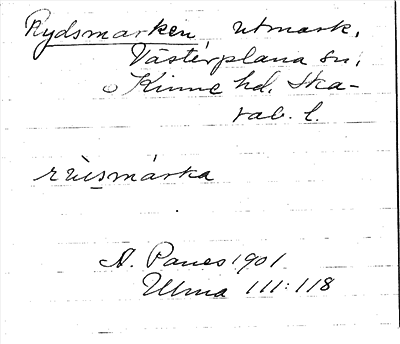 Rydsmarken, utmark,
Västerplana sn,
Kinne hd, Ska-
rab. l.
rùismárka
A. Panes 1901
Ulma 111:118